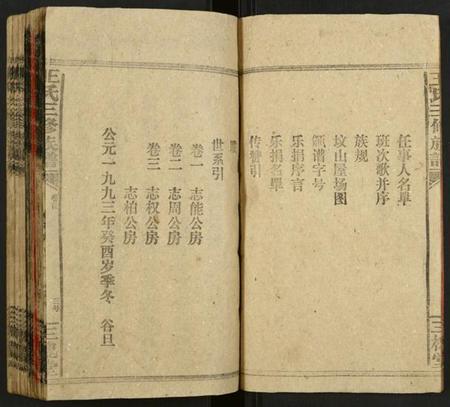 王氏三修族譜
任事人名单
班次歌并序
族规
坟山屋场图
领谱字号
乐捐序言
乐捐名单
传赞引
世系引
卷一 志能公房
卷二 志周公房
卷三 志权公房
志柏公房
公元一九九三年癸酉岁季冬 谷旦
王氏三修族譜
卷首
三槐堂
三槐堂